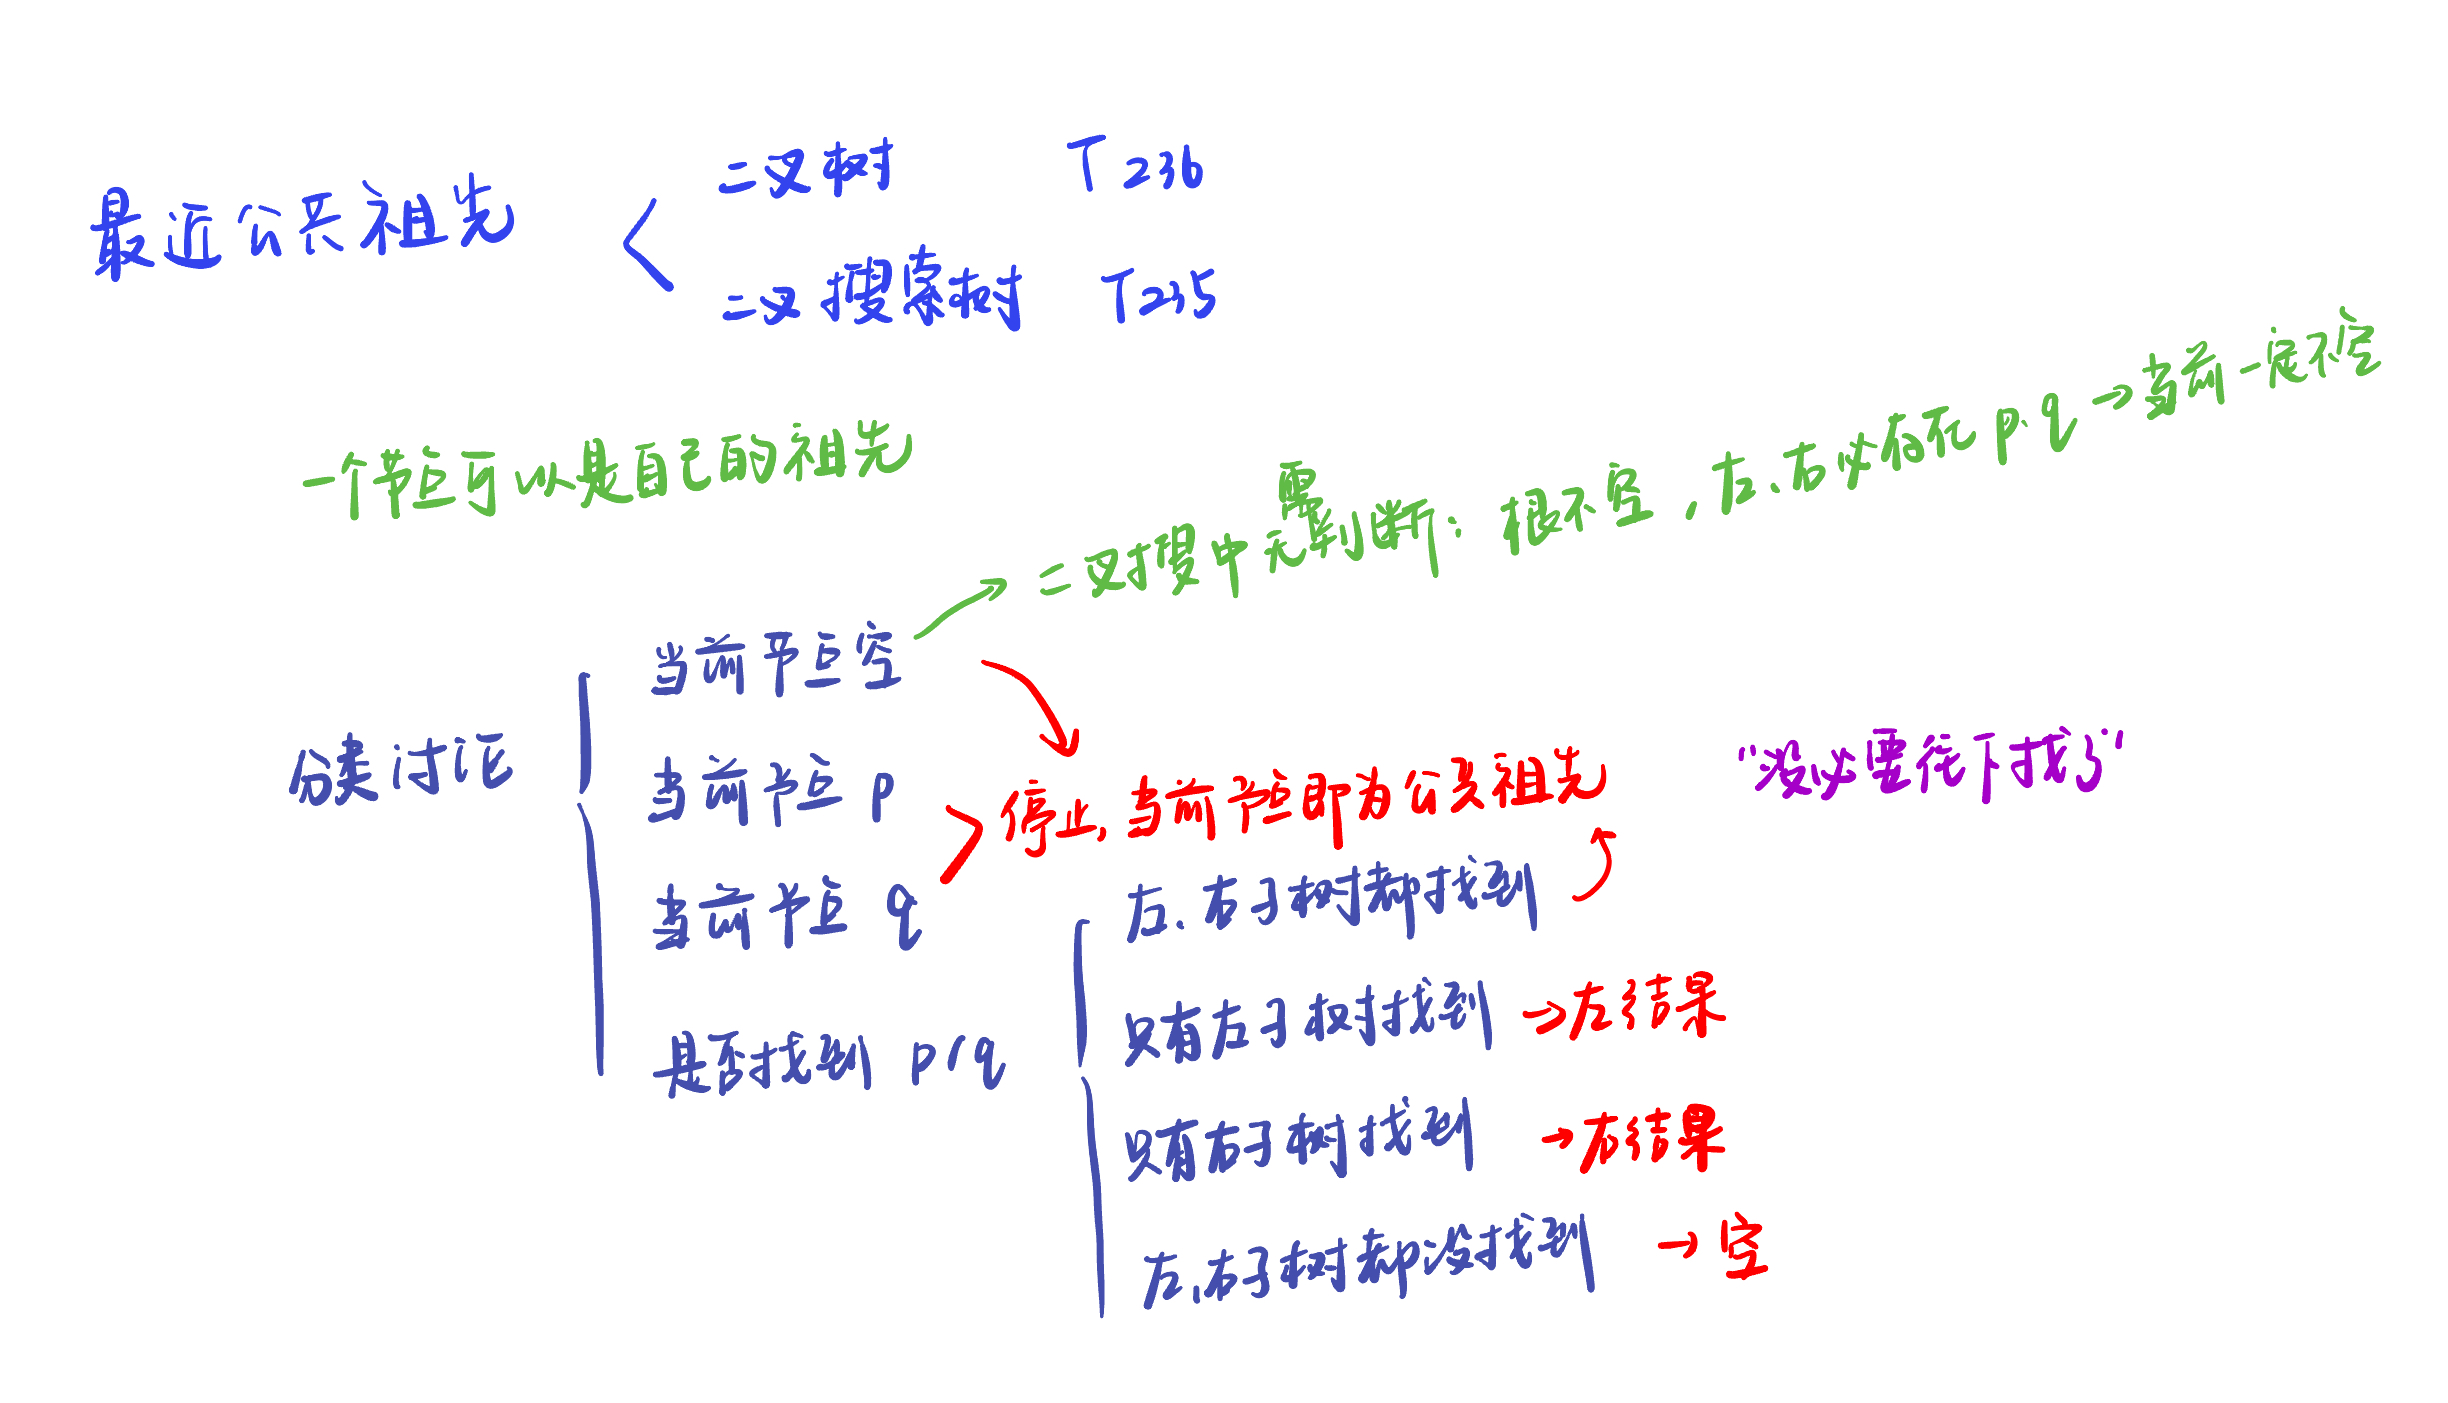 最近公共祖先
二叉树 T236
二叉搜索树 T235
一个节点可以是自己的祖先
二叉搜中无需判断：根不空，左、右必有死 p.q → 当前一定不空
分类讨论
当前节点空
当前节点 p
当前节点 q
停止，当前节点即为公共祖先
"没必要往下找了"
是否找到 p/q
左、右子树都找到
只有左子树找到 → 左结果
只有右子树找到 → 右结果
左、右子树都没找到 → 空